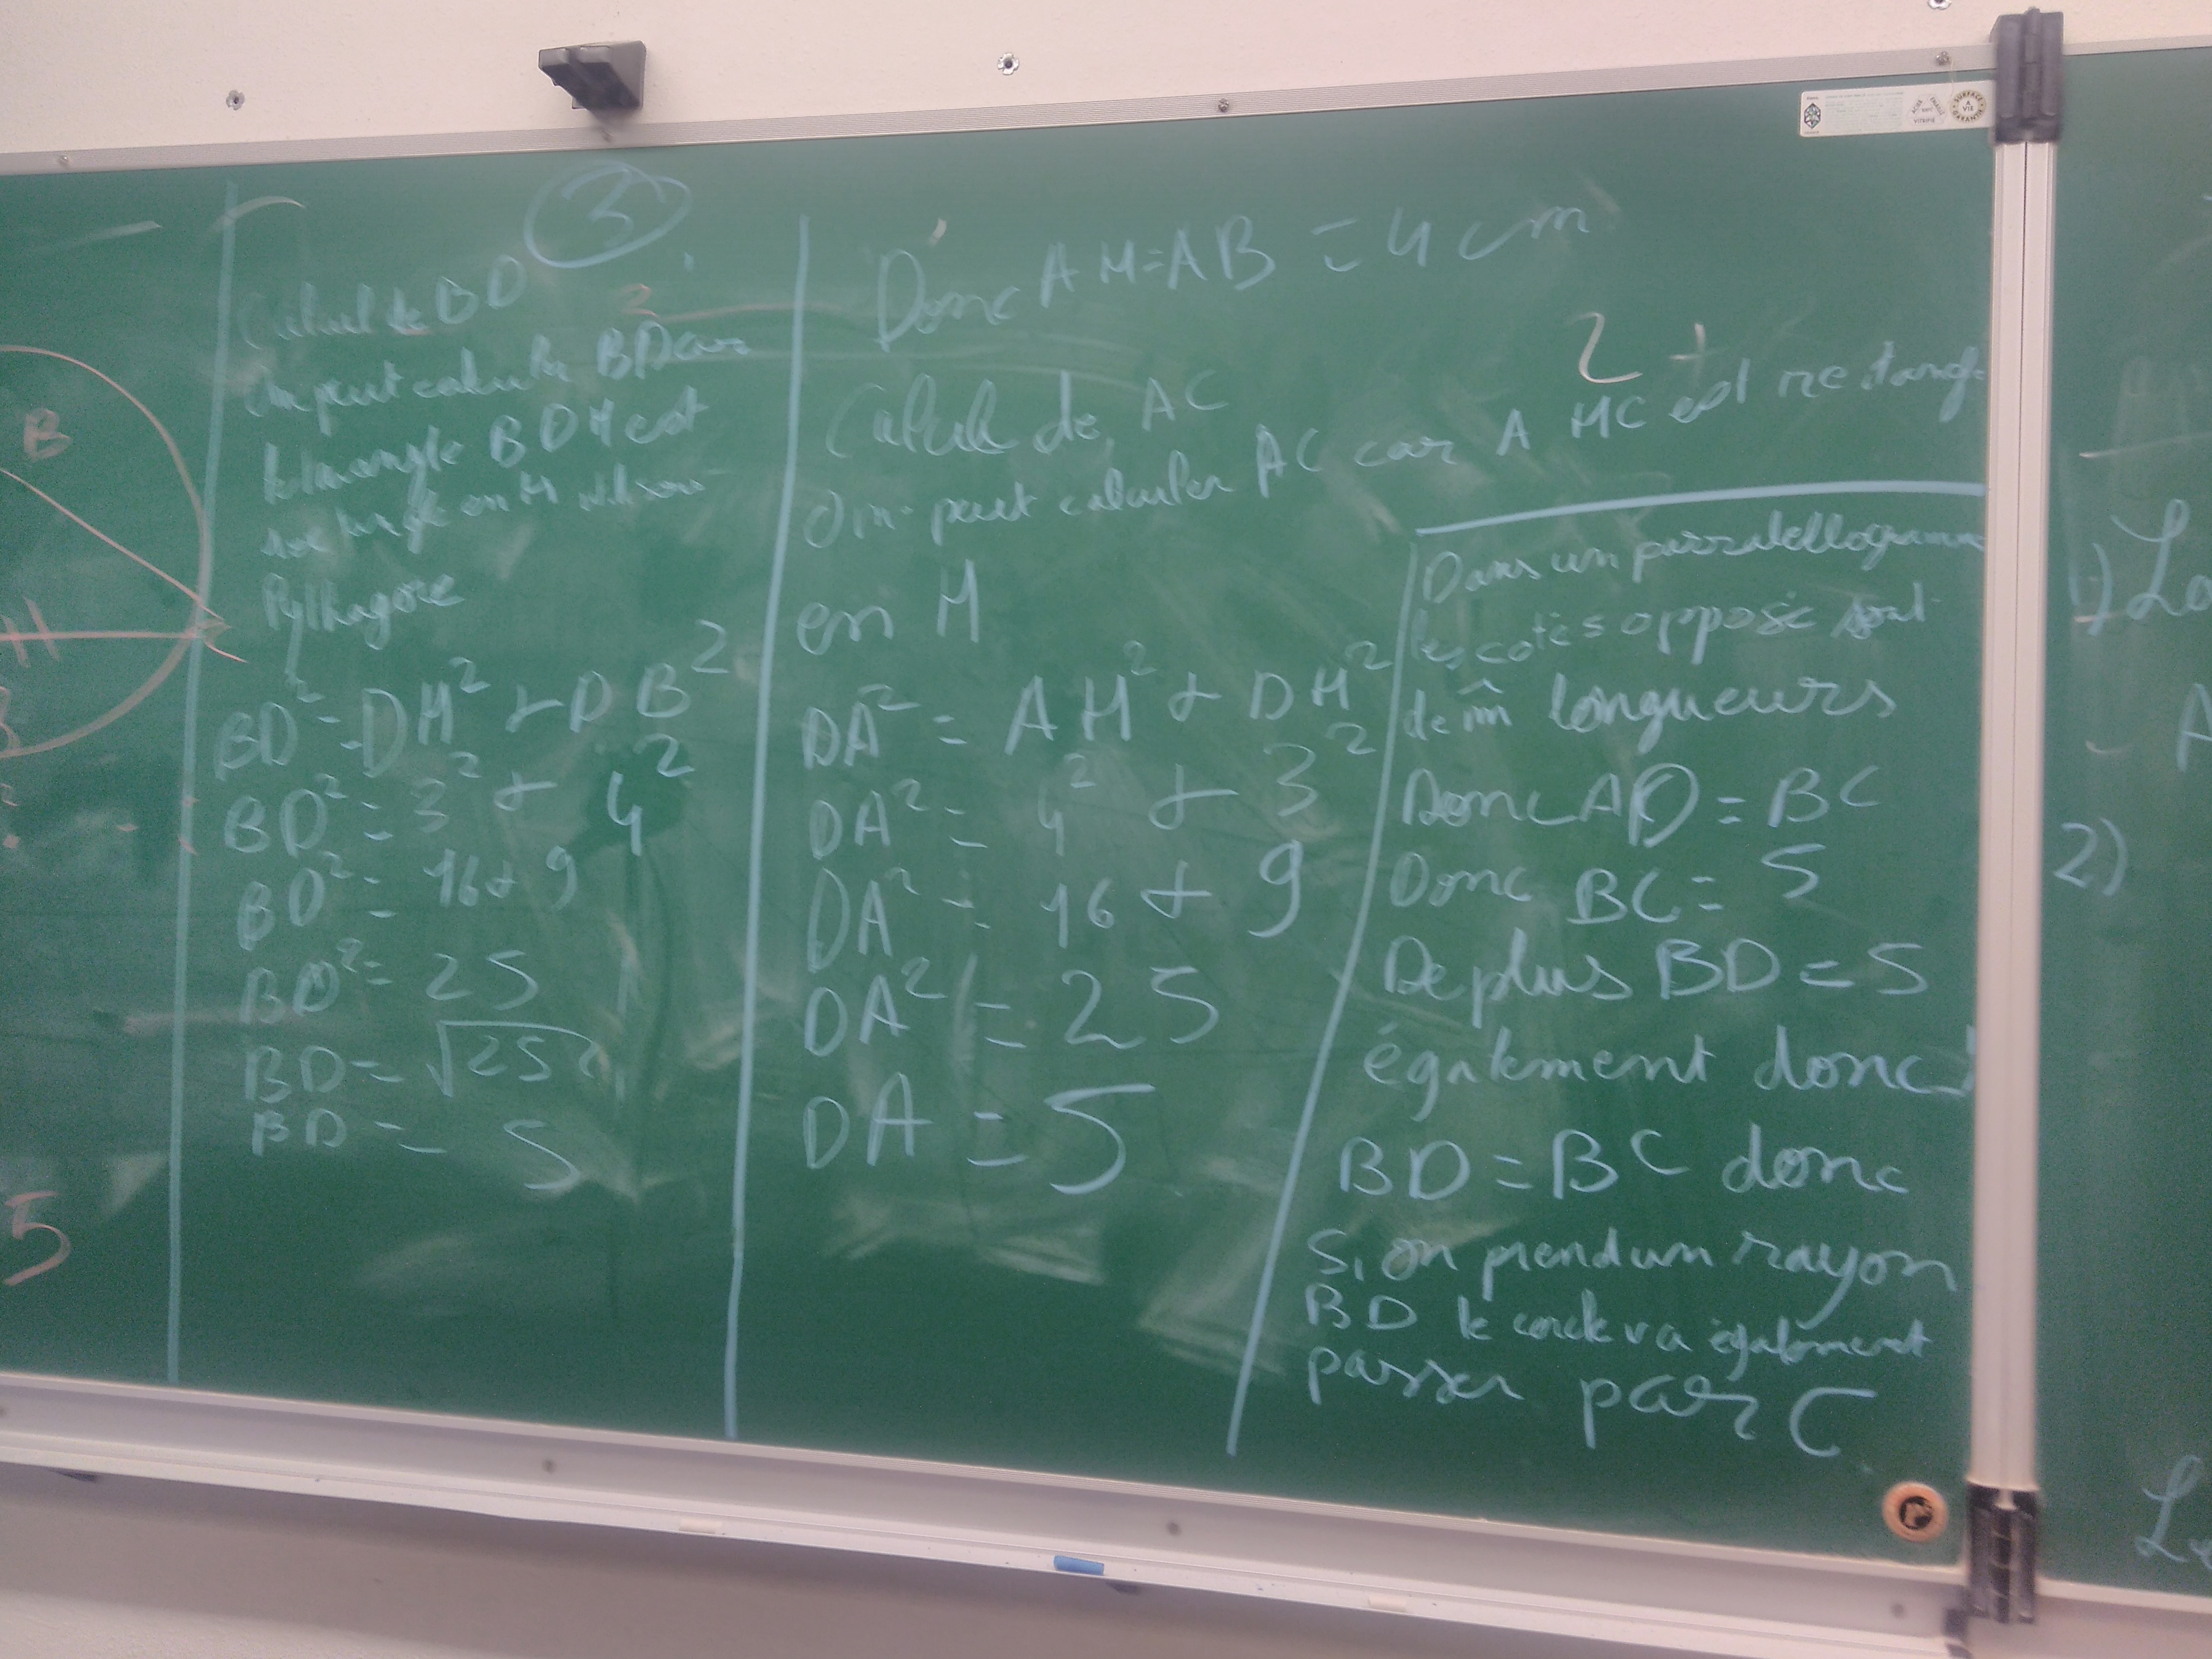 B
H
5
3
Calcul de BD
On peut calculer BD car
le triangle BDM est
rectangle en M utilison
Pythagore
BD² = DM² + DB²
BD² = 3² + 4²
BD² = 16 + 9
BD² = 25
BD = √25
BD = 5
Donc AM = AB = 4 cm
Calcul de AC
On peut calculer AC car AMC est rectangle
en M
DA² = AM² + DM²
DA² = 4² + 3²
DA² = 16 + 9
DA² = 25
DA = 5
2 +
Dans un parralellogramme
les cotés opposé sont
de m̂ longueurs
Donc AD = BC
Donc BC = 5
De plus BD = 5
également donc
BD = BC donc
Si on prend un rayon
BD le cercle va également
passer par C
1) Lo
A
2)
SURFACE GARANTIE A VIE